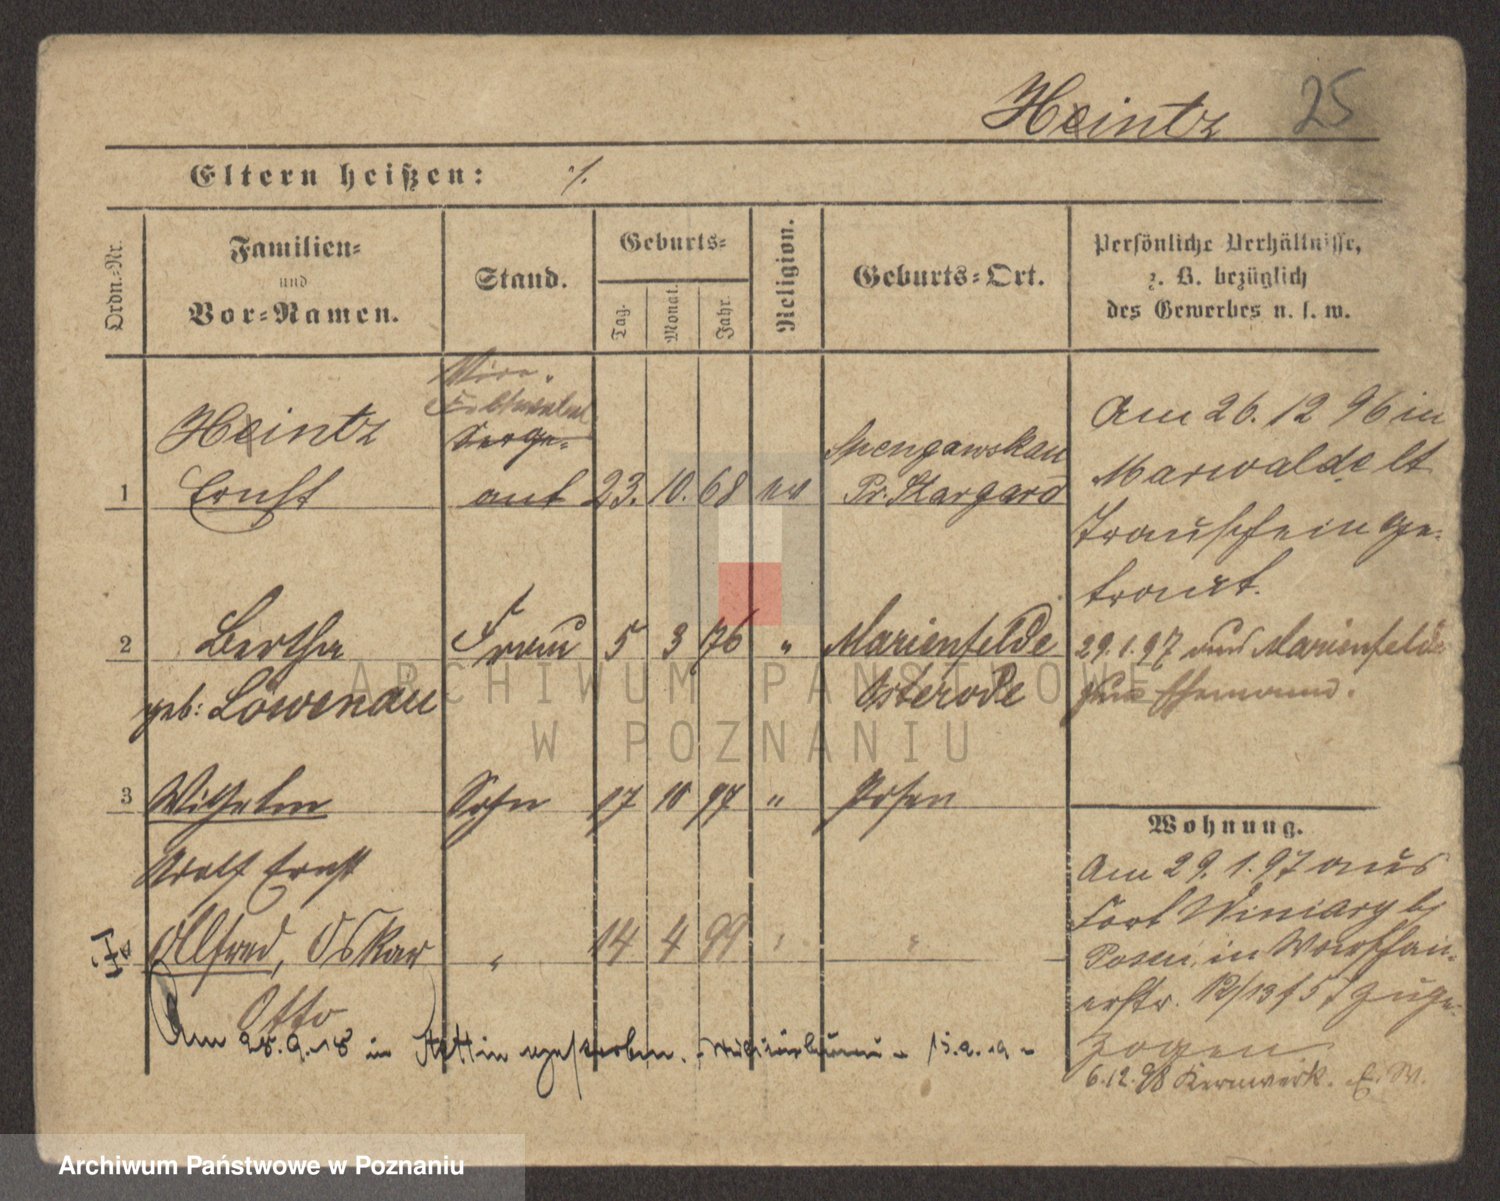 Heintz 25
Eltern heißen: ./.
Ordn.-Nr.
Familien-
und
Vor-Namen.
Stand.
Geburts-
Tag.
Monat.
Jahr.
Religion.
Geburts-Ort.
Persönliche Verhältnisse,
z. B. bezüglich
des Gewerbes u. s. w.
1
Heintz
Ernst
Vice-
Feldwebel
Serge-
ant
23. 10. 68 ev
Spengawskau
Pr. Stargard
Am 26. 12 96 in
Marwalde lt
Trauschein ge-
traut.
2
Bertha
geb: Löwenau
Frau
5 3 76 "
Marienfelde
Osterode
29. 1. 97 aus Marienfelde
zum Ehemann.
3
Wilhelm
Adolf Ernst
Sohn
17 10 97 "
Posen
Alfred, Oskar
Otto
"
14 4 99 " "
Am 28. 9. 18 in Stettin gestorben.
Wohnung.
Am 29. 1. 97 aus
Fort Winiary b/
Posen in
12/13 f 5 zuge-
zogen
6. 12. 98 Kernwerk. E. W.
ARCHIWUM PAŃSTWOWE
W POZNANIU
Archiwum Państwowe w Poznaniu